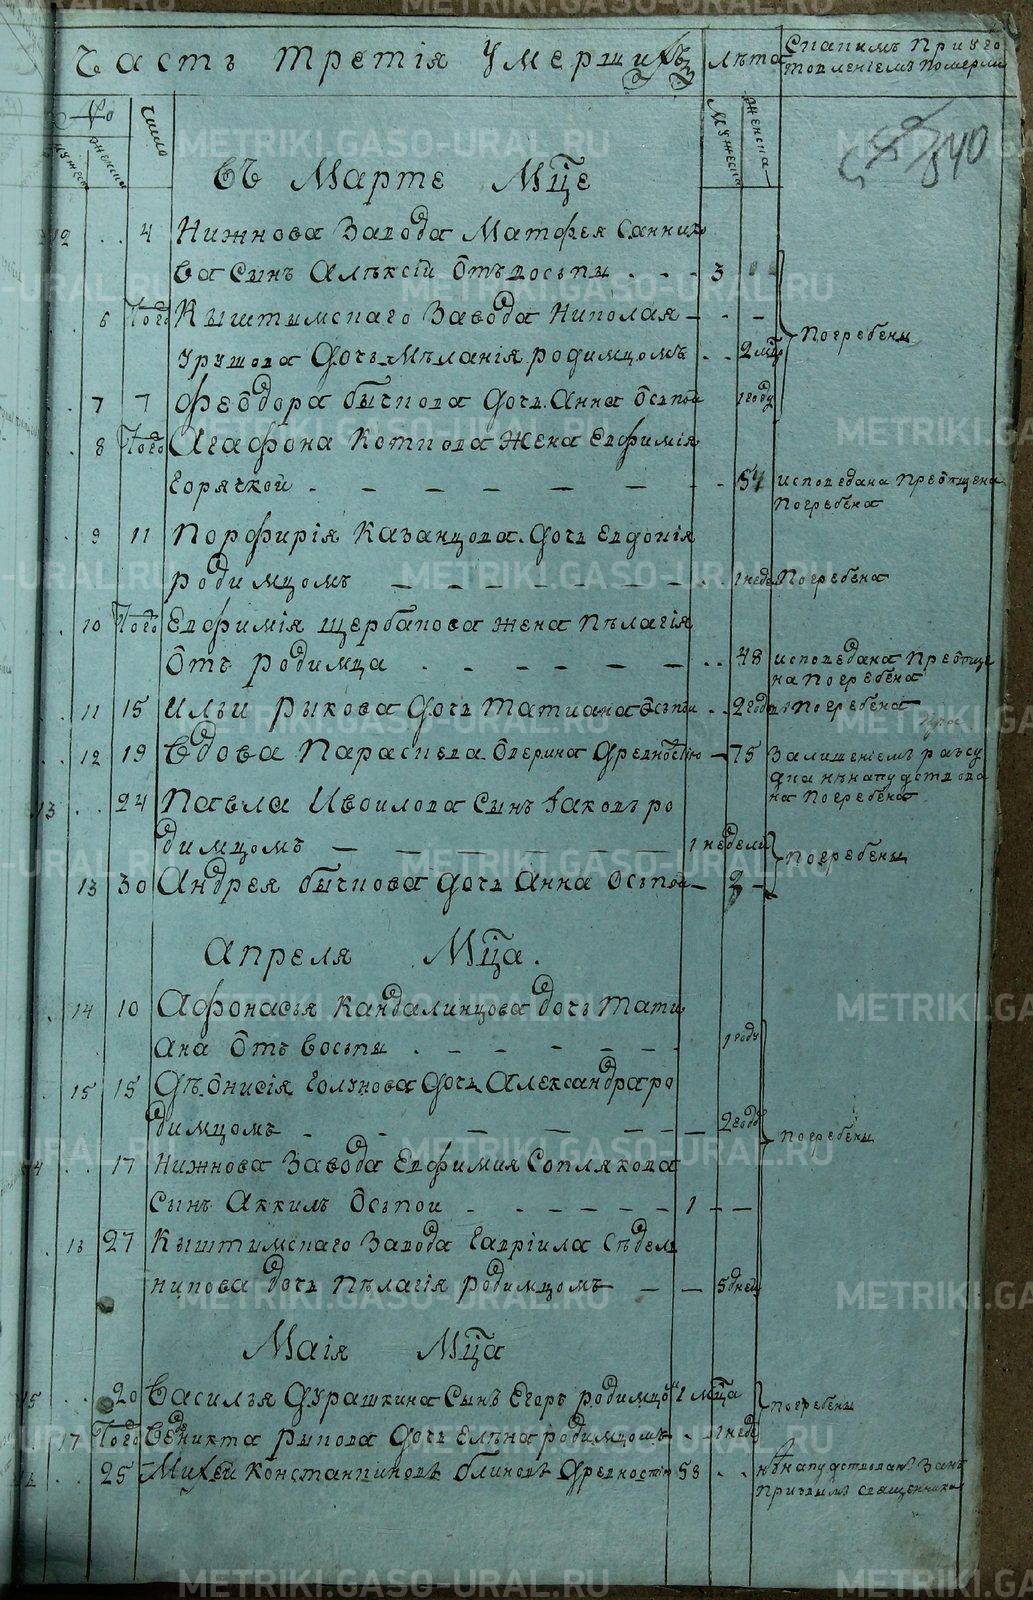 Часть третія Умершихъ
лѣта
Спапимъ Приуго
товленіемъ Померли
№
мужеска
женска
число
Мужеска
женска
840
Въ Марте Мц̃е
12 . . 4 Нижнова Завода Матфея Санник
ва Сынъ Алѣксій Отъ восьпы . - - 3
6 Того Кыштымскаго Завода Николая - - -
Урушова Дочь Мѣланія родимцомъ . . 2 мц̃а
Погребены
7 7 Феодора бычкова Дочь Анна Оспой 1 году
8 Того Агафона Коткова Жена Евфимія
Горячкой . - - - - - - - 54 исповедана Преобщена
Погребена
9 11 Порфирія Казанцова Дочь Евдокія
родимцомъ - - - - - - . . 1 неде Погребена
10 Того Евфимія Щербакова жена Пѣлагія
Отъ родимца . . - - - - . . 48 исповедана Преобще
на Погребена
11 15 Ильи рыкова Дочь Татиана Оспой . . 2 годовъ Погребена
12 19 Вдова Параскева Древностію - 75 Залишеніемъ разсу
дка нѣнапутствова
на Погребена
13 . . 24 Павла Ивоилова Сынъ Іаковъ ро
димцомъ - - - - - - 1 недели
Погребены
13 30 Андрея бычкова дочь Анна Оспой - 2 -
Апреля Мц̃а.
14 10 Афонасья Кандалинцова дочь Тати
ана Отъ восьпы . - - - - - 1 году
15 15 Дѣонисія Голунова Дочь Александра ро
димцомъ - - - - - - - 2 годо
Погребены
14 . . 17 Нижнова Завода Евфимия Соплякова
Сынъ Аккилъ Оспои - - - - - - 1 - -
16 27 Кыштымскаго Завода Гавріила Сѣдель
никова дочь Пѣлагія родимцомъ - - 5 дней
Маія Мц̃а
15 . . 20 Василья Дурашкина Сынъ Егоръ родимцо 2 мц̃а
Погребены
17 Того Веникта рыкова Дочь Елѣна родимцомъ - - 1 неде
16 . . 25 Михей Константиновъ блиновъ Древностію 58 . . нѣнапутствованъ Занѣ
Приездомъ священника
METRIKI.GASO-URAL.RU